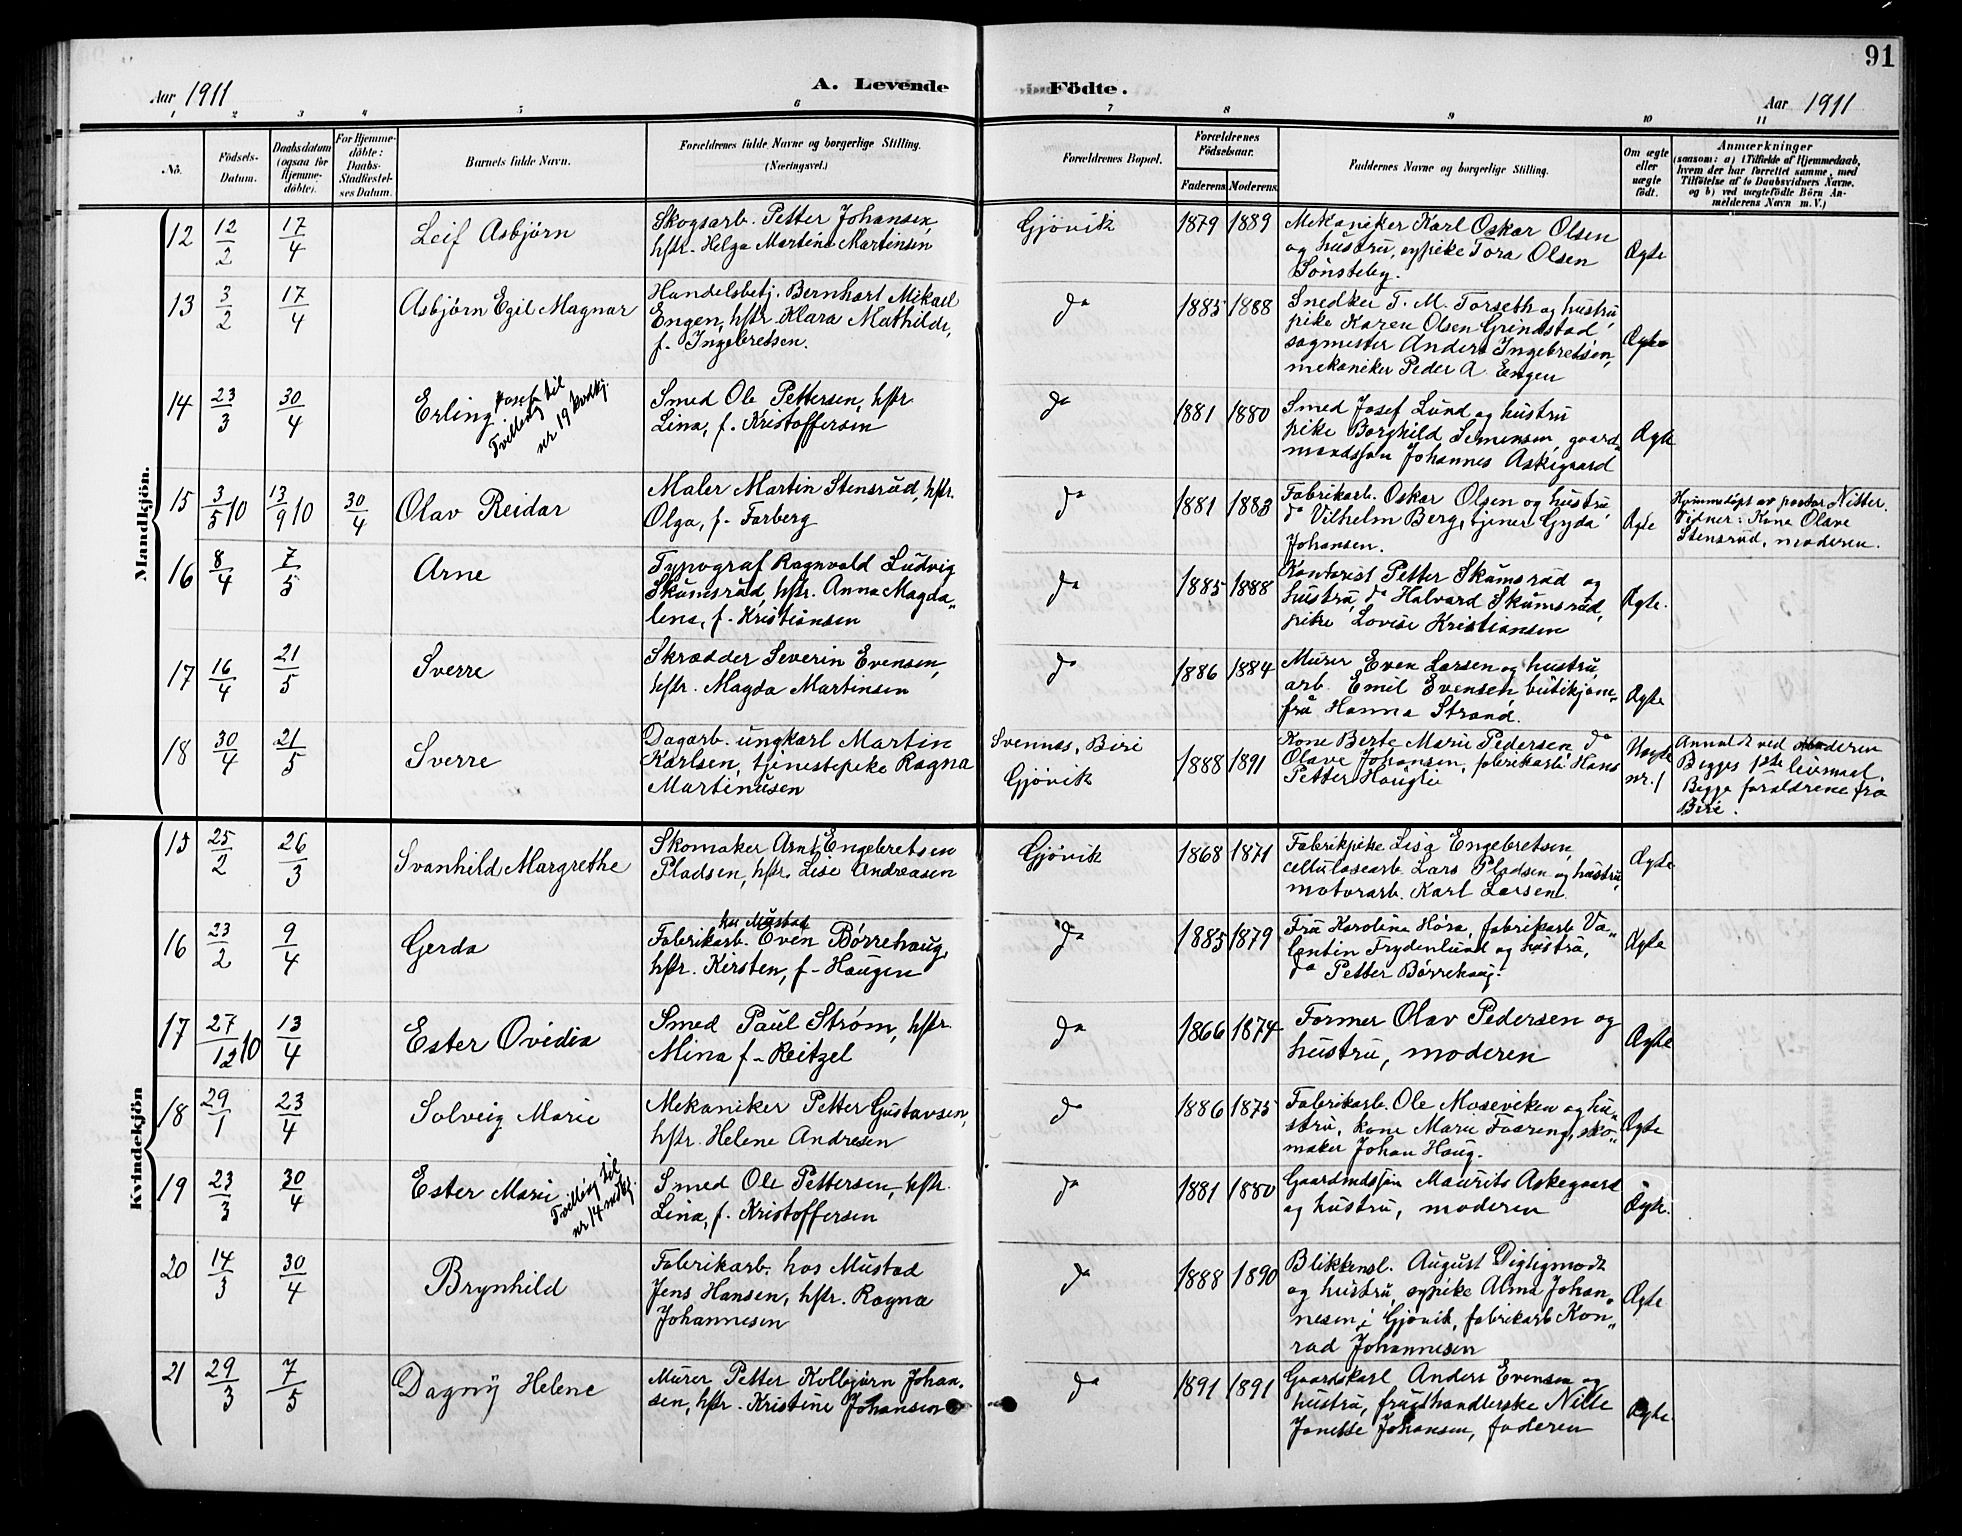 91
Aar 1911
A. Levende
Födte.
Aar 1911
1 2 3 4 5 6 7 8 9 10 11
No.
Födsels-
Datum.
Daabsdatum
(ogsaa for
Hjemme-
döbte).
For Hjemme-
döbte:
Daabs-
Stadfæstel-
ses Datum.
Barnets fulde Navn.
Forældrenes fulde Navne og borgerlige Stilling.
(Næringsvei.)
Forældrenes Bopæl.
Forældrenes
Födselsaar.
Faderens.
Moderens.
Faddernes Navne og borgerlige Stilling.
Om ægte
eller
uægte
født.
Anmærkninger
(saasom: a) i Tilfælde af Hjemmedaab,
hvem der har forrettet samme, med
Tilföielse af to Daabsvidners Navne,
og b) ved uægtefödte Börn An-
melderens Navn m. V.)
Mandkjön.
12 12/2 17/4 Leif Asbjørn
Skogsarb. Petter Johansen,
hstr. Helga Martine Martinsen
Gjövik 1879 1889
Mekaniker Karl Oskar Olsen
og hustru, sypike Tora Olsen
Sönsteby.
Ægte
13 3/2 17/4 Asbjørn Egil Magnar
Handelsbetj. Bernhart Mikael
Engen, hstr. Klara Mathilde,
f. Ingebretsen.
do 1885 1888
Snedker T. M. Torseth og hustru,
pike Karen Olsen Grindstad
sagmester Anders Ingebretsen,
mekaniker Peder A. Engen
Ægte
14 23/3 30/4 Erling Josef
Tvilling til
nr 19 kvdkj.
Smed Ole Pettersen, hstr
Lina, f. Kristoffersen
do 1881 1880
Smed Josef Lund og hustru
pike Borghild Simensen, gaard-
mandssøn Johannes Askegaard
Ægte
15 3/5 10 13/9 10 30/4 Olav Reidar
Maler Martin Stensrud, hstr.
Olga, f. Farberg
do 1881 1883
Fabrikarb. Oskar Olsen og hustru,
do Vilhelm Berg, tjener Gyda
Johansen.
Ægte
Hjemmedöpt av pastor Nitter.
Vidner: Kone Olave
Stensrud, moderen.
16 8/4 7/5 Arne
Typograf Ragnvald Ludvig
Skumsrud, hstr. Anna Magda-
lena, f. Kristiansen
do 1885 1888
Kontorist Petter Skumsrud og
hustru, do Halvard Skumsrud,
pike Lovise Kristiansen
Ægte.
17 16/4 21/5 Sverre
Skrædder Severin Evensen,
hstr. Magda Martinsen
do 1886 1884
Murer Even Larsen og hustru,
arb. Emil Evensen, butikjom-
fru Hanna Strand.
Ægte
18 30/4 21/5 Sverre
Dagarb. ungkarl Martin
Karlsen, tjenestepike Ragna
Martinusen
Svennæs, Biri
Gjövik
1888 1891
Kone Berte Marie Pedersen, do
Olave Johansen, fabrikarb. Hans
Petter Hauglie
Uægte
nr. 1
Anmeldt ved Moderen
Begges 1ste leiermaal.
Begge forældrene fra
Biri.
Kvindekjön
15 25/2 26/3 Svanhild Margrethe
Skomaker Arnt Engebretsen
Pladsen, hstr. Lise Andreasen
Gjövik 1868 1871
Fabrikpike Lisa Engebretsen,
cellulosearb. Lars Pladsen og hustru,
motorarb. Karl Larsen
Ægte
16 23/2 9/4 Gerda
hos Mustad
Fabrikarb. Even Børrehaug,
hstr. Kirsten, f. Haugen
do 1885 1879
Fru Karoline Höra, fabrikarb. Va-
lentin Frydenlund og hustru,
do Petter Børrehaug.
Ægte
17 27/12 10 13/4 Ester Ovidia
Smed Paul Strøm, hstr.
Mina f. Reitzel
do 1866 1874
Former Olav Pedersen og
hustru, moderen
Ægte
18 29/1 23/4 Solveig Marie
Mekaniker Petter Gustavsen,
hstr. Helene Andresen
do 1886 1875
Fabrikarb. Ole Moseviken og hu-
stru, kone Marie Faareng, sko-
maker Johan Haug.
Ægte
19 23/3 30/4 Ester Marie
Tvilling til
nr 14 mdkj.
Smed Ole Pettersen, hstr.
Lina, f. Kristoffersen
do 1881 1880
Gaardmdssøn Maurits Askegaard
og hustru, moderen
Ægte.
20 14/3 30/4 Brynhild
Fabrikarb. hos Mustad
Jens Hansen, hstr. Ragna
Johannesen
do 1888 1890
Blikkensl. August Digtigmodt
og hustru, sypike Alma Johan-
nesen, Gjövik, fabrikarb. Kon-
rad Johannesen
Ægte
21 29/3 7/5 Dagny Helene
Murer Petter Kolbjørn Johan-
sen, hstr. Kristine Johansen
do 1891 1891
Gaardskarl Anders Evensen og
hustru, frugthandlerske Nille
Janette Johansen, faderen
Ægte